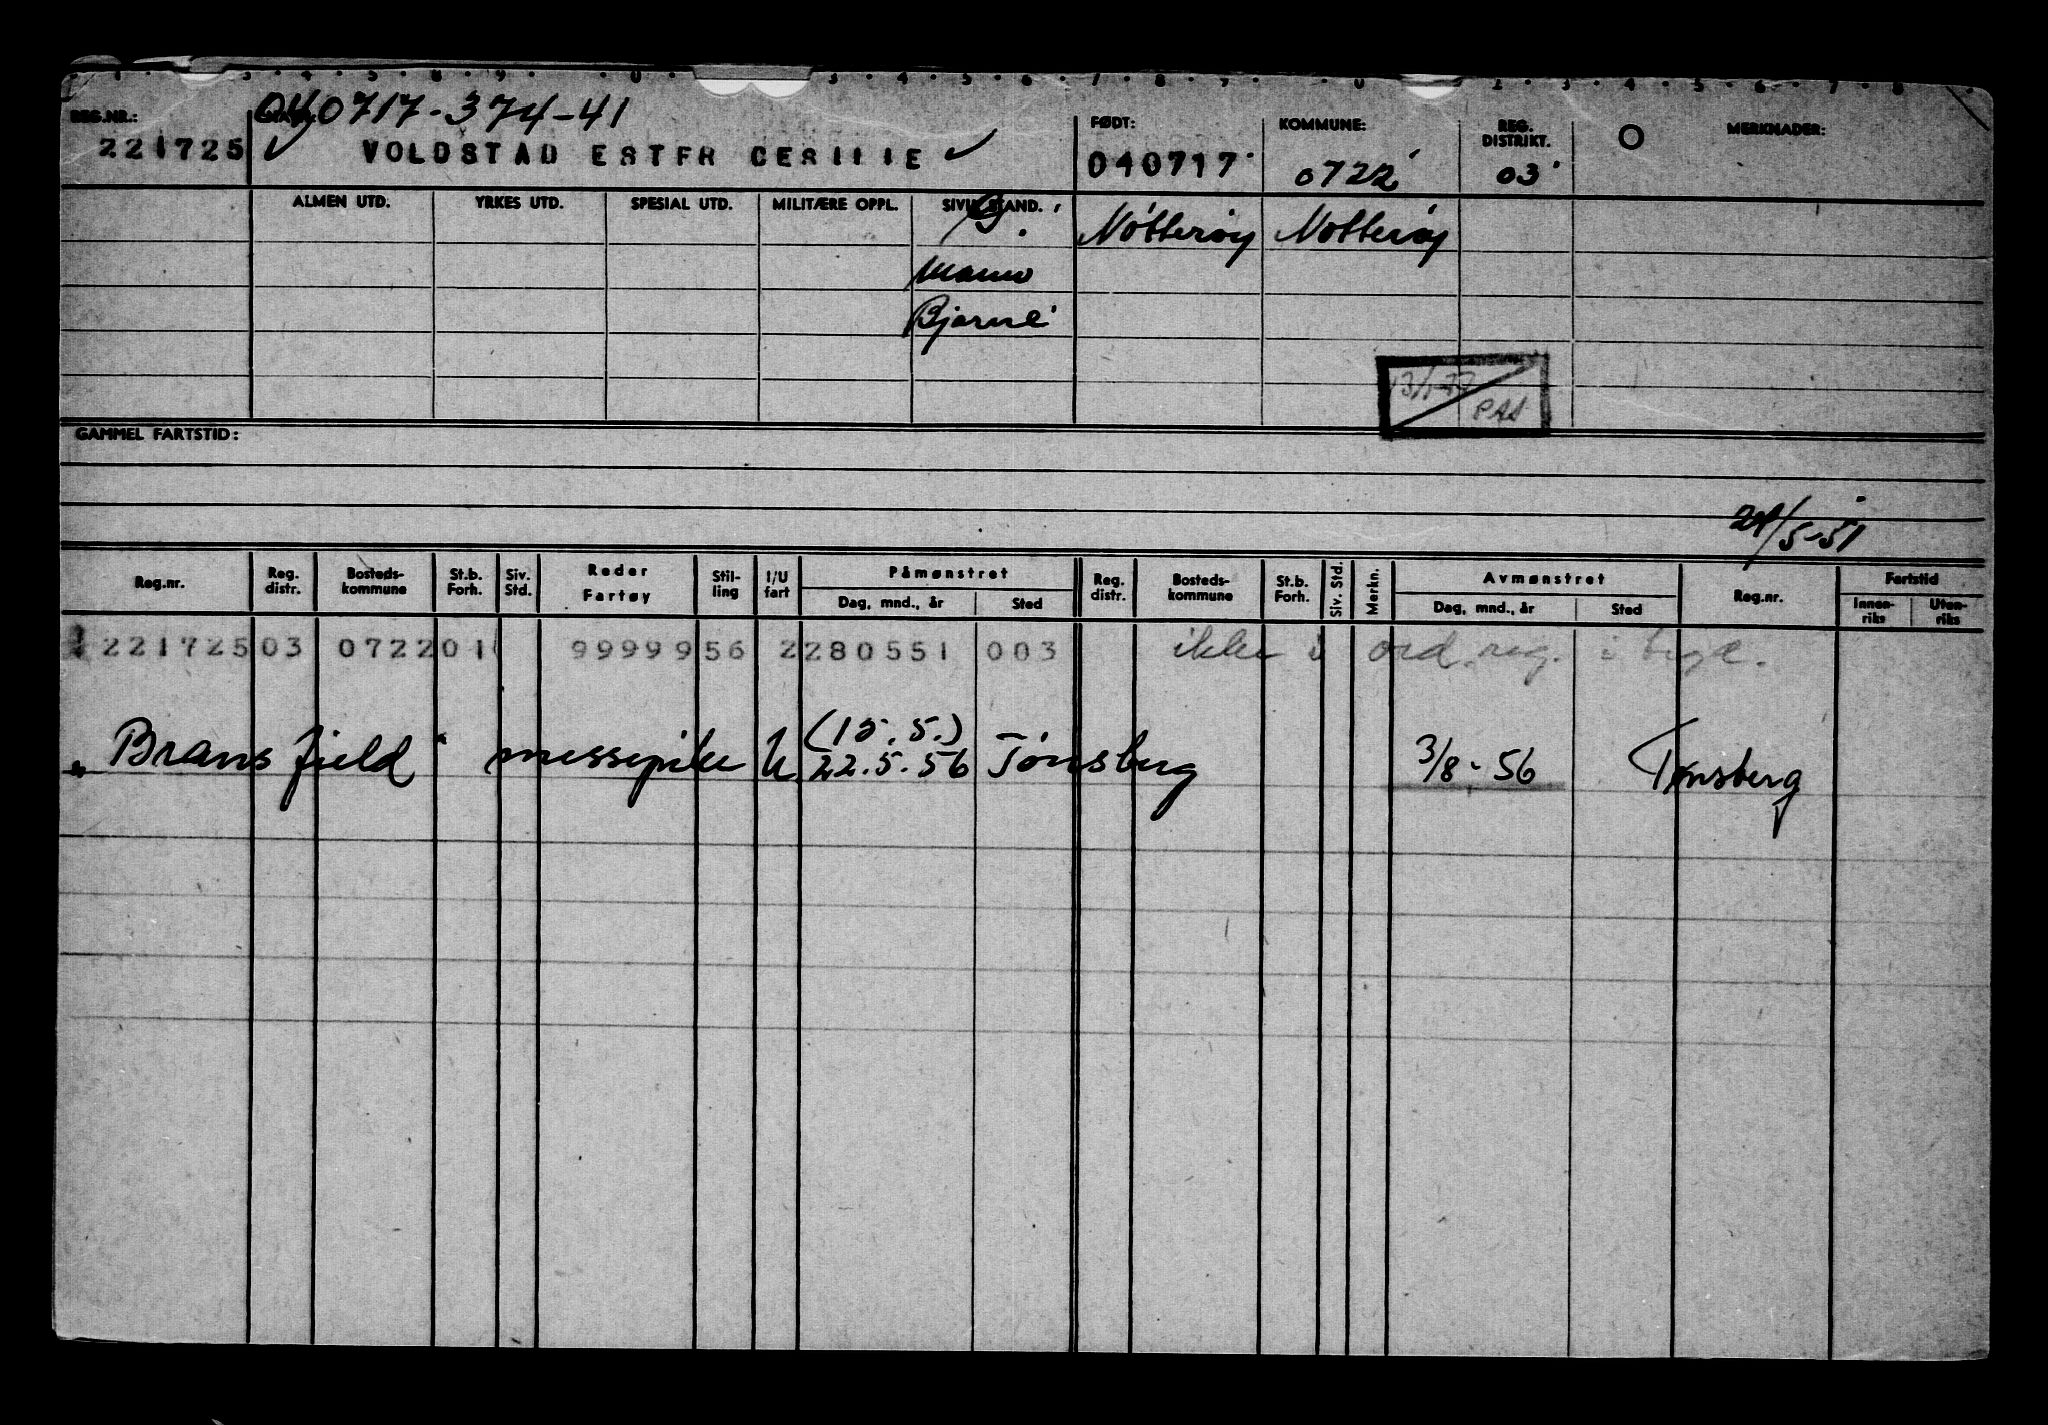 040717-374-41
REG.NR.: NAVN: FØDT: KOMMUNE: REG. DISTRIKT. MERKNADER:
221725 VOLDSTAD ESTER CESILIE 040717 0722 03
ALMEN UTD. YRKES UTD. SPESIAL UTD. MILITÆRE OPPL. SIVIL STAND.
G. Nøtterøy Nøtterøy
Mann
Bjarne
13/1-77
PAA
GAMMEL FARTSTID:
24/5-51
Reg.nr. Reg. distr. Bosteds-kommune St.b. Forh. Siv. Std. Reder Fartøy Stil-ling I/U fart Påmønstret Dag, mnd., år Sted Reg. distr. Bosteds-kommune St.b. Forh. Siv. Std. Merkn. Avmønstret Dag, mnd., år Sted Reg.nr. Fartstid Innen-riks Uten-riks
221725 03 0722 01 99999 56 2 280551 003 ikke i ord. reg. i
(15.5.)
"Bransfield" messepike U 22.5.56 Tønsberg 3/8-56 Tønsberg